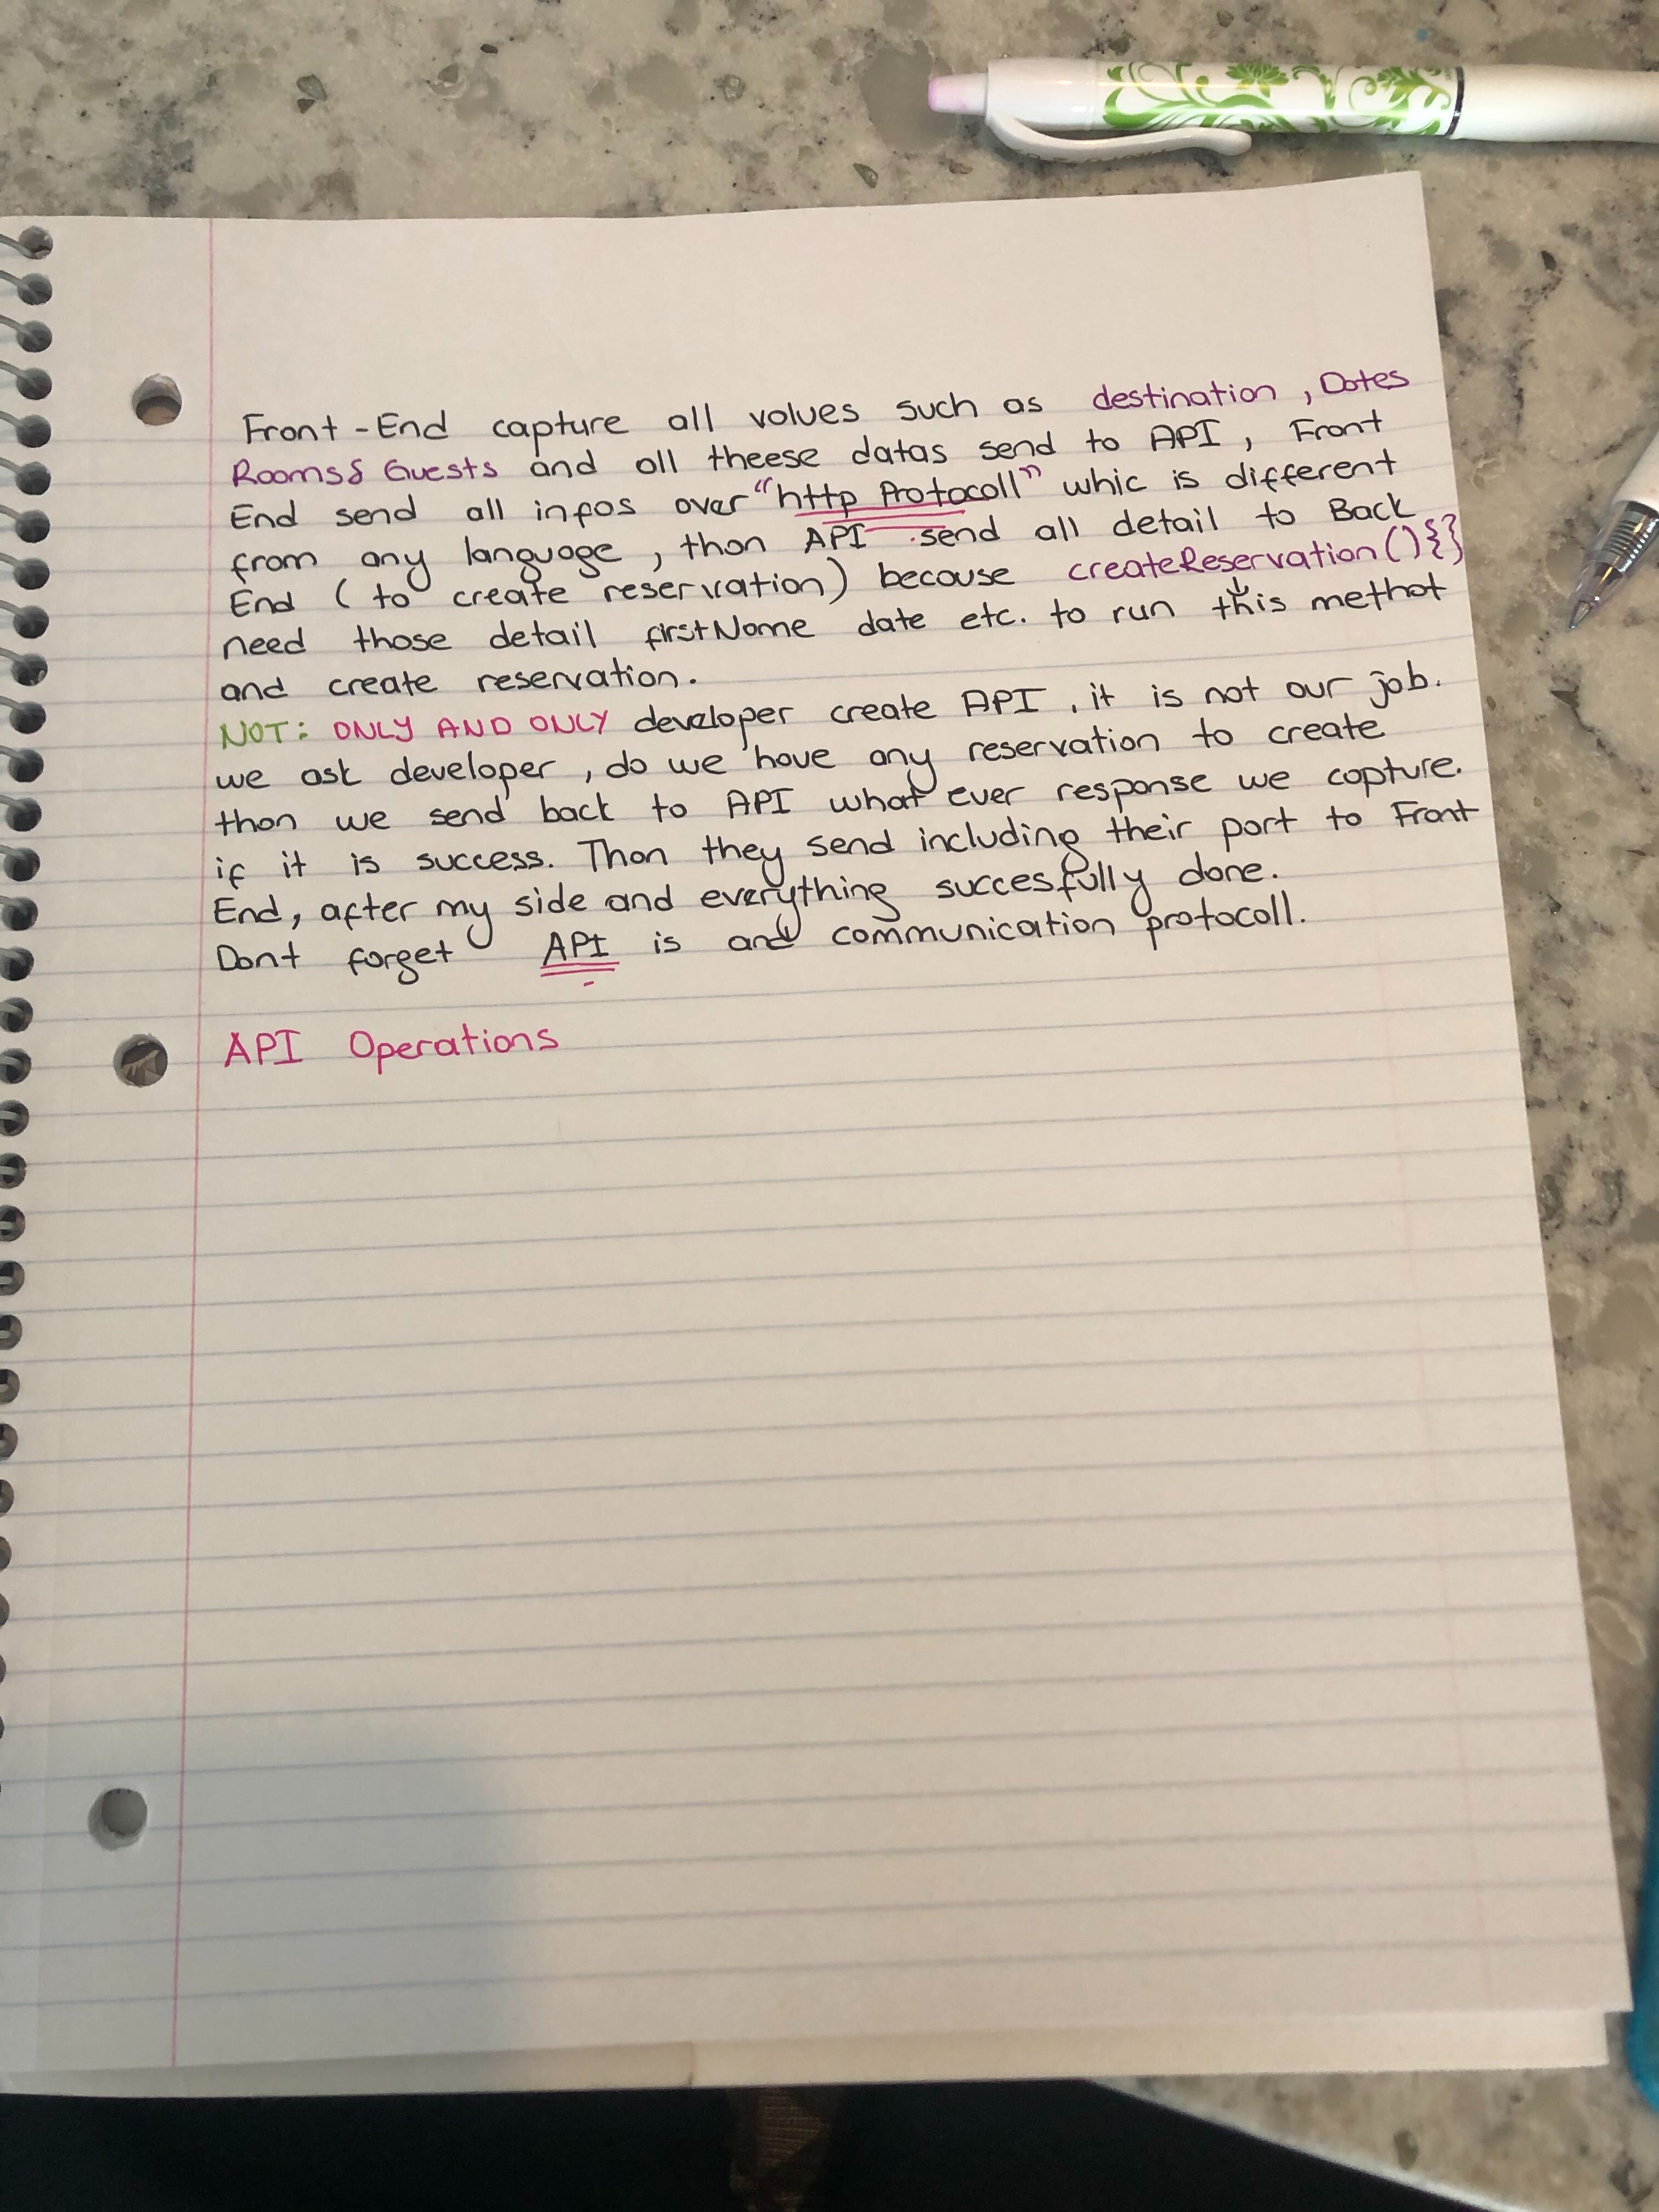 Front-End capture all values such as destination, Dates
Rooms& Guests and all theese datas send to API, Front
End send all infos over "http Protocoll" whic is different
from any language, than API send all detail to Back
End (to create reservation) because createReservation(){}
need those detail firstName date etc. to run this methot
and create reservation.
NOT: ONLY AND ONLY developer create API, it is not our job.
we ask developer, do we have any reservation to create
than we send back to API what ever response we capture.
if it is success. Than they send including their port to Front
End, after my side and everything succesfully done.
Dont forget API is and communication protocoll.
API Operations